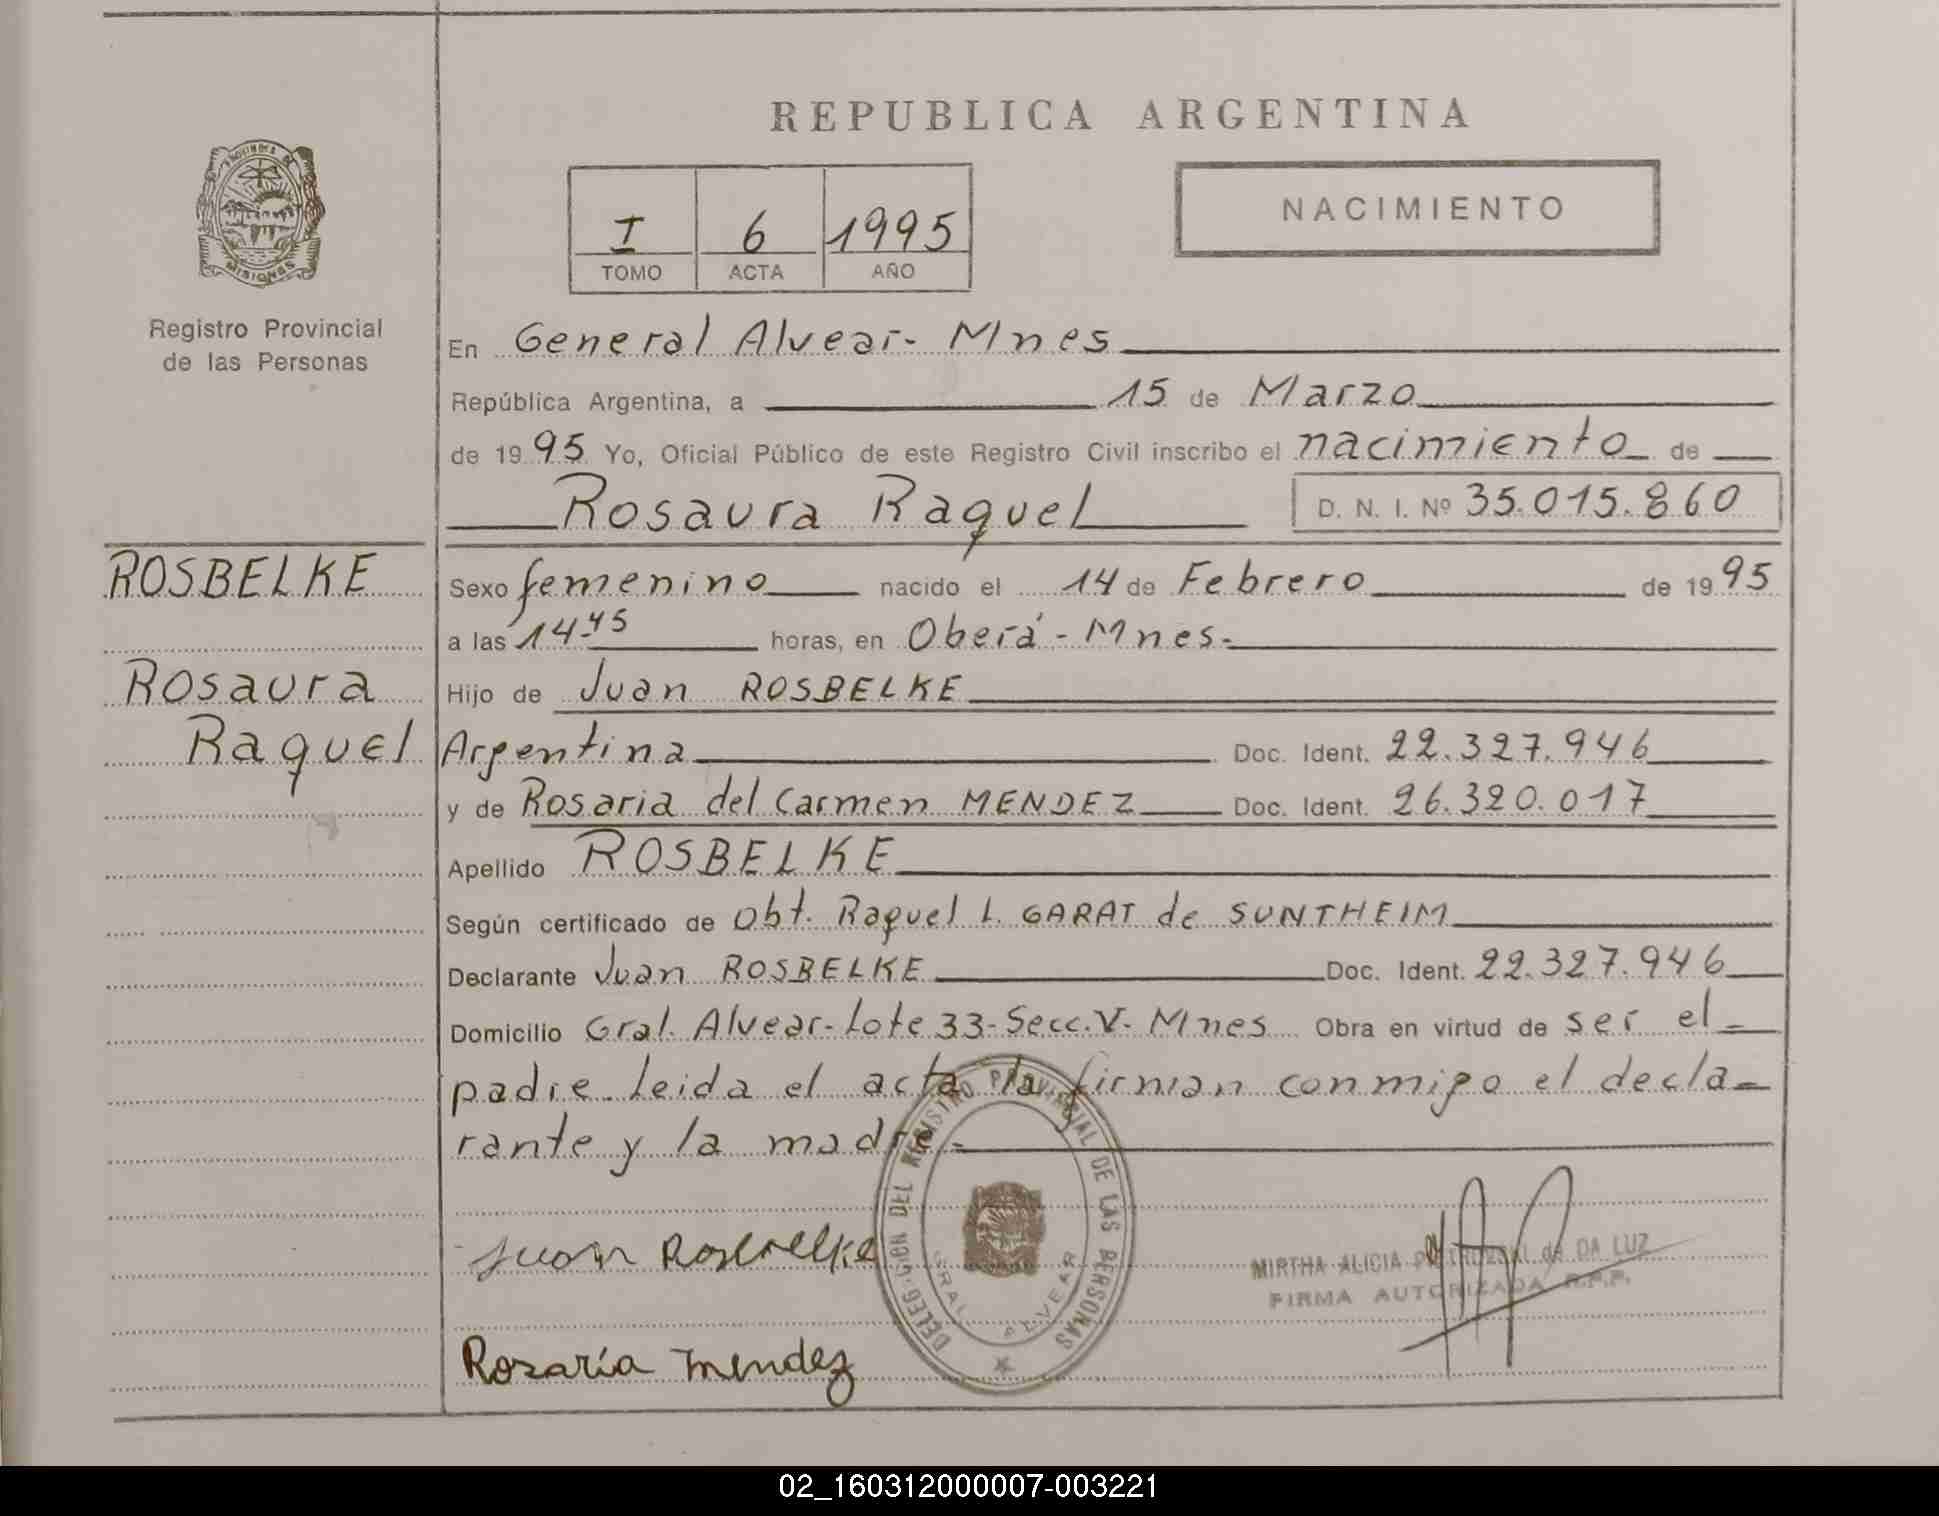 REPUBLICA ARGENTINA
PROVINCIA DE MISIONES
I 6 1995
TOMO ACTA AÑO
NACIMIENTO
Registro Provincial
de las Personas
En General Alvear- Mnes
República Argentina, a 15 de Marzo
de 1995 Yo, Oficial Público de este Registro Civil inscribo el nacimiento de
Rosaura Raquel D. N. I. Nº 35.015.860
ROSBELKE
Rosaura
Raquel
Sexo femenino nacido el 14 de Febrero de 1995
a las 14.45 horas, en Oberá - Mnes.
Hijo de Juan ROSBELKE
Argentina Doc. Ident. 22.327.946
y de Rosaria del Carmen MENDEZ Doc. Ident. 26.320.017
Apellido ROSBELKE
Según certificado de Obt. Raquel L. GARAT de SUNTHEIM
Declarante Juan ROSBELKE Doc. Ident. 22.327.946
Domicilio Gral. Alvear- Lote 33- Secc. V- Mnes Obra en virtud de ser el
padre. Leida el acta la firman conmigo el decla-
rante y la madre.-
Juan Rosbelke
DELEGACION DEL REGISTRO PROVINCIAL DE LAS PERSONAS
GRAL ALVEAR
MIRTHA ALICIA de DA LUZ
FIRMA AUTORIZADA R.P.P.
Rosaría mendez
02_160312000007-003221